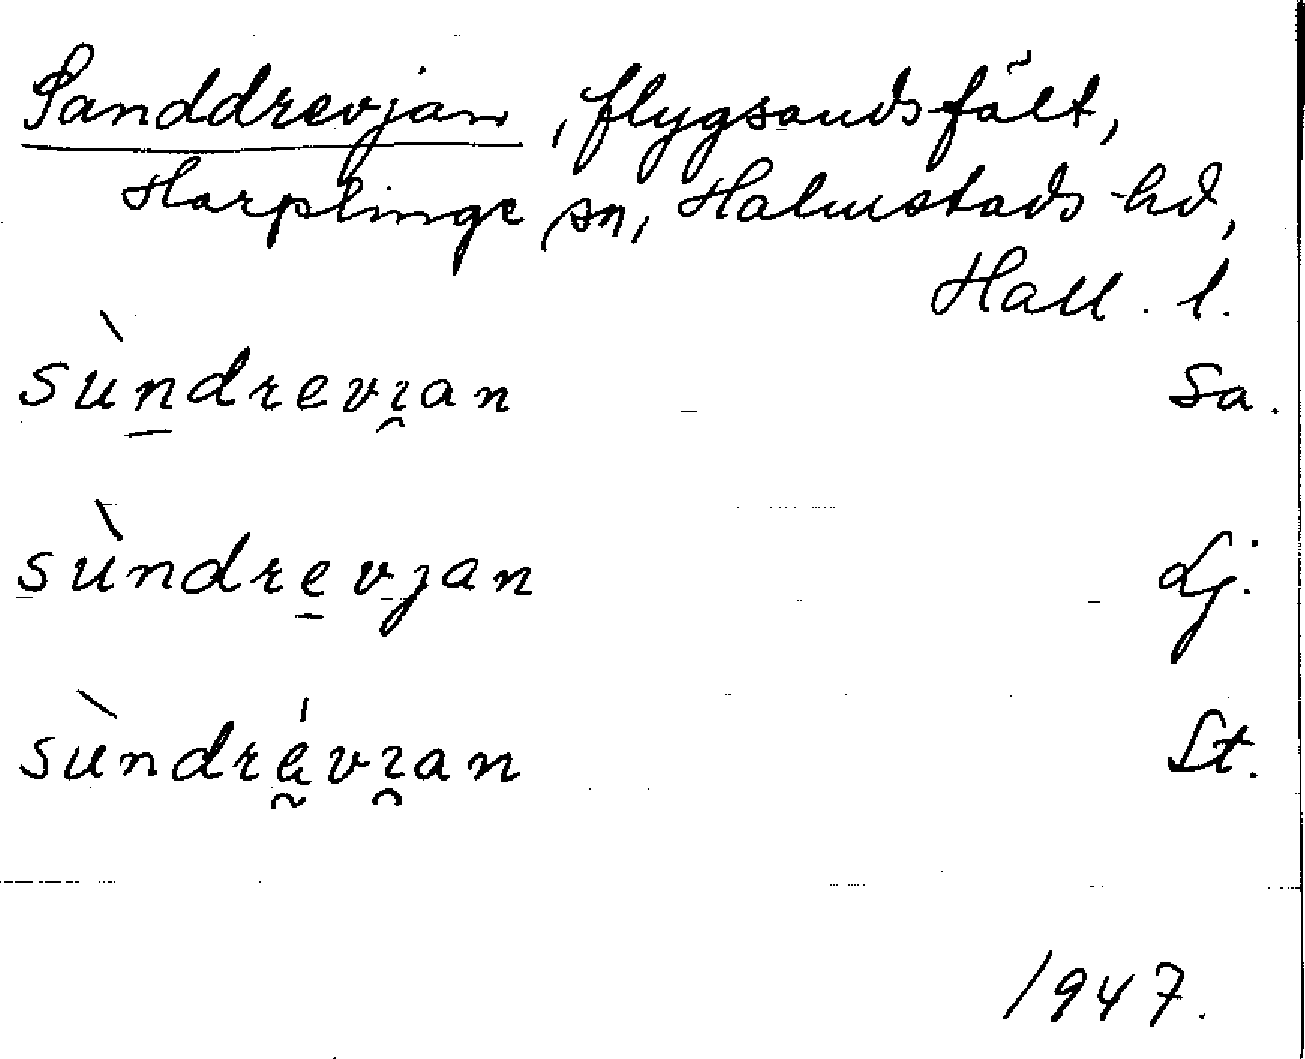 Sanddrevjan, flygsandsfält,
Harplinge sn, Halmstads hd,
Hall. l.
sùndrevɿan Sa.
sùndrevȷan Lj.
sùndrávɿan St.
1947.